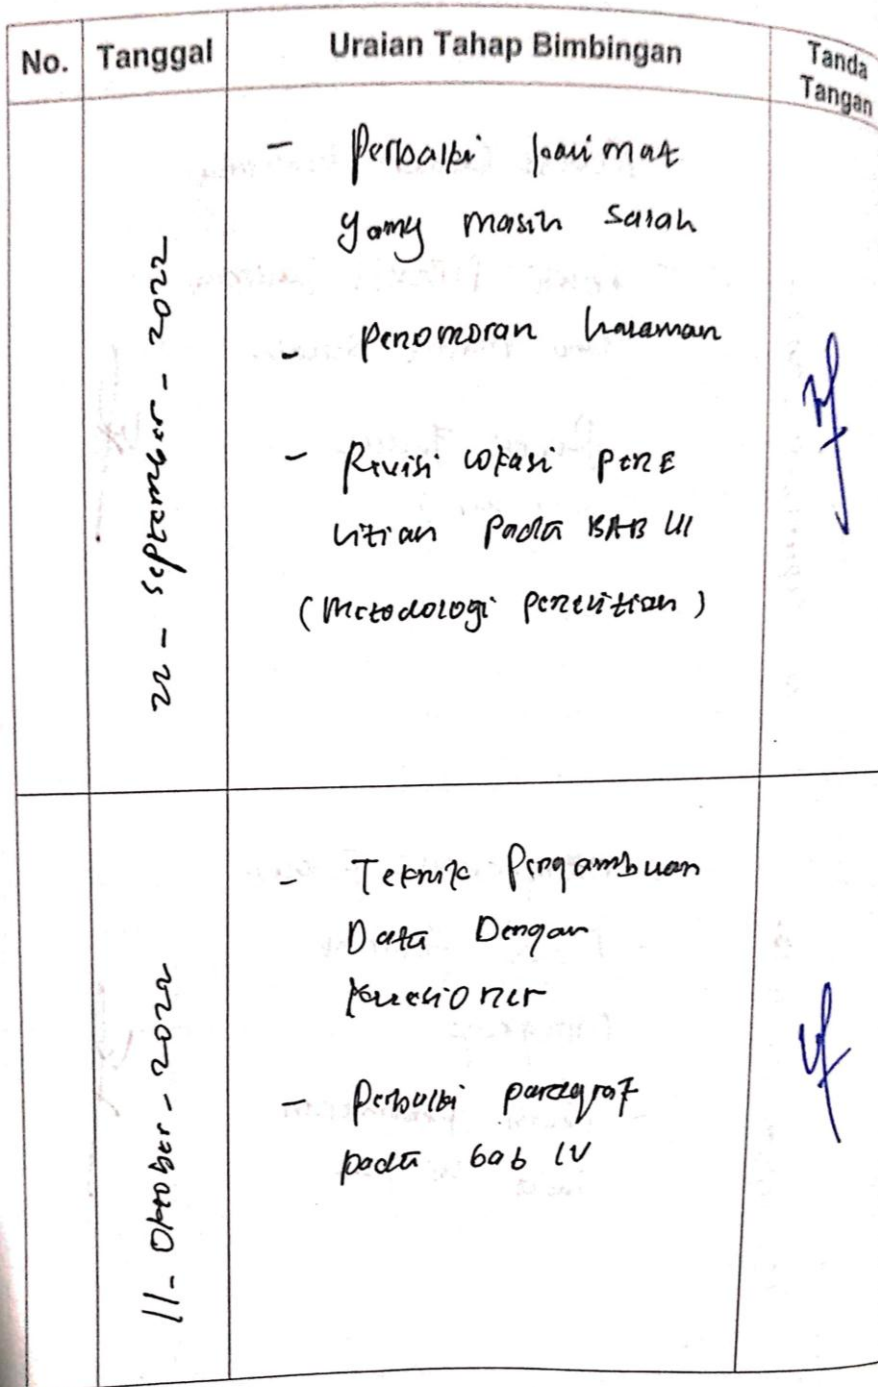 No. Tanggal Uraian Tahap Bimbingan Tanda Tangan
22 - September - 2022
- Perbaiki kalimat
yang masih salah
- Penomoran halaman
- Revisi lokasi pene
litian pada BAB III
(Metodologi penelitian)
11 - Oktober - 2022
- Teknik Pengambilan
Data Dengan
kuesioner
- Perbaiki paragraf
pada bab IV